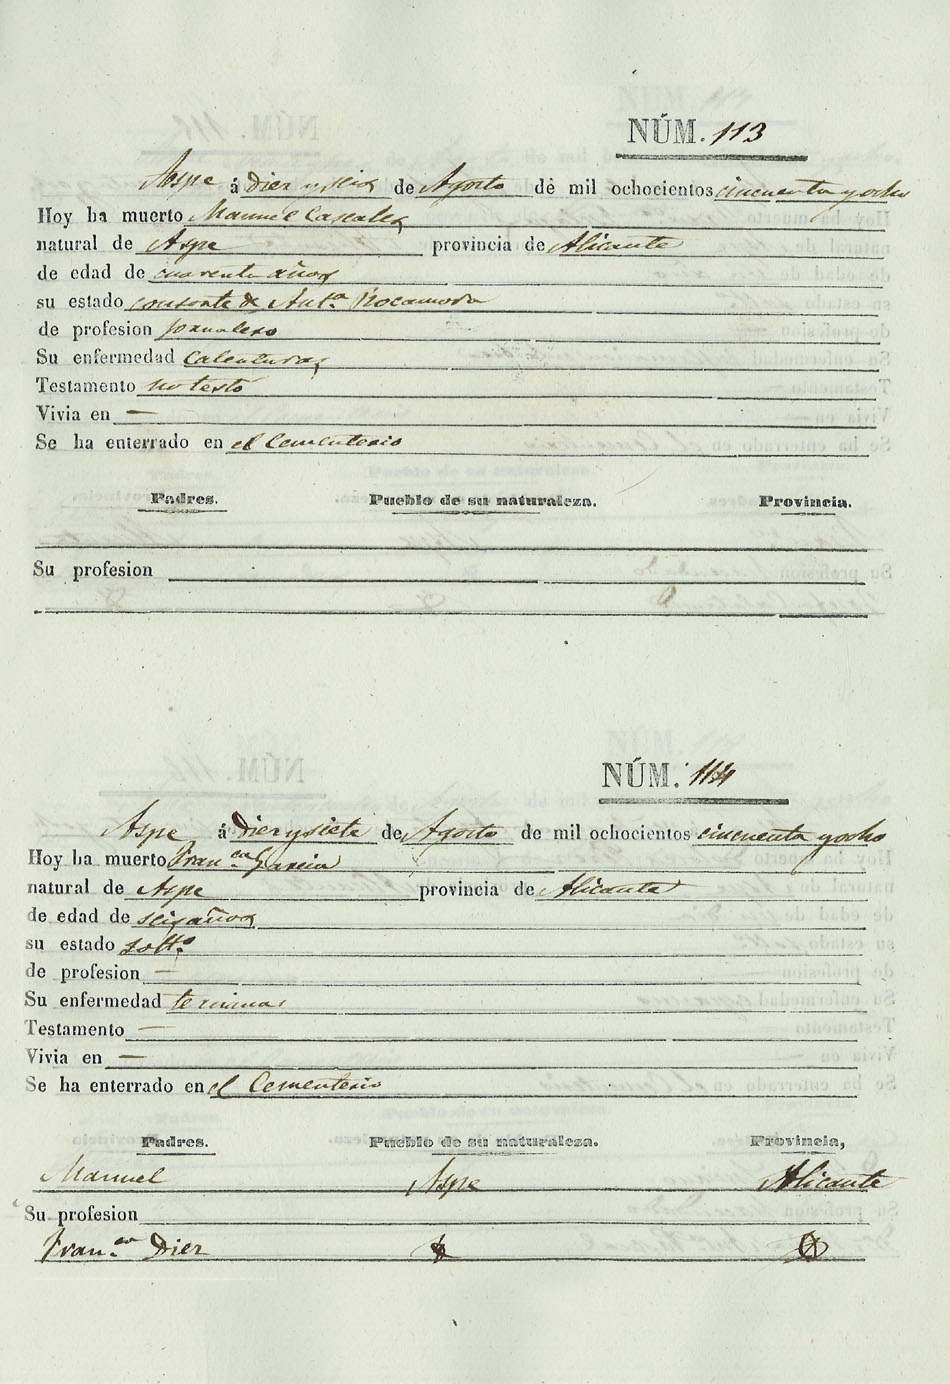 NÚM. 113
Aspe á Diez y seis de Agosto de mil ochocientos cincuenta y ocho
Hoy ha muerto Manuel Cascales
natural de Aspe provincia de Alicante
de edad de cuarenta años
su estado consorte de Ant.ª Rocamora
de profesion jornalero
Su enfermedad Calenturas
Testamento no testó
Vivia en —
Se ha enterrado en el Cementerio
Padres. Pueblo de su naturaleza. Provincia.
Su profesion
NÚM. 114
Aspe á Diez y siete de Agosto de mil ochocientos cincuenta y ocho
Hoy ha muerto Fran.ca Garcia
natural de Aspe provincia de Alicante
de edad de seis años
su estado solt.ª
de profesion —
Su enfermedad
Testamento —
Vivia en —
Se ha enterrado en el Cementerio
Padres. Pueblo de su naturaleza. Provincia,
Manuel Aspe Alicante
Su profesion
Fran.ca Diez